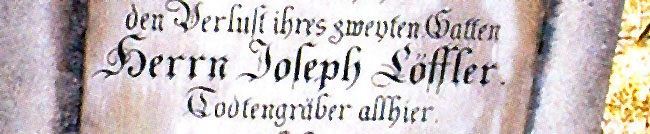 den Verlust ihres zweyten Gatten
Herrn Joseph Löffler.
Todtengräber allhier.